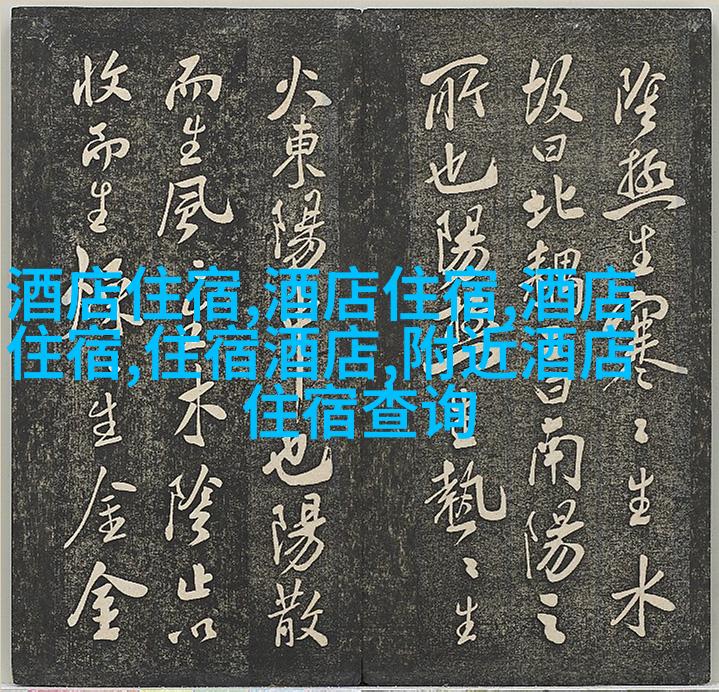 酒店住宿,酒店住宿,酒店
住宿,住宿酒店,附近酒店
住宿查询
陰極生寒〻生水
故曰北耦曰南陽之
所也陽生熱〻生
火東陽也陽散
而生風〻生木陰止以
收而生生金金